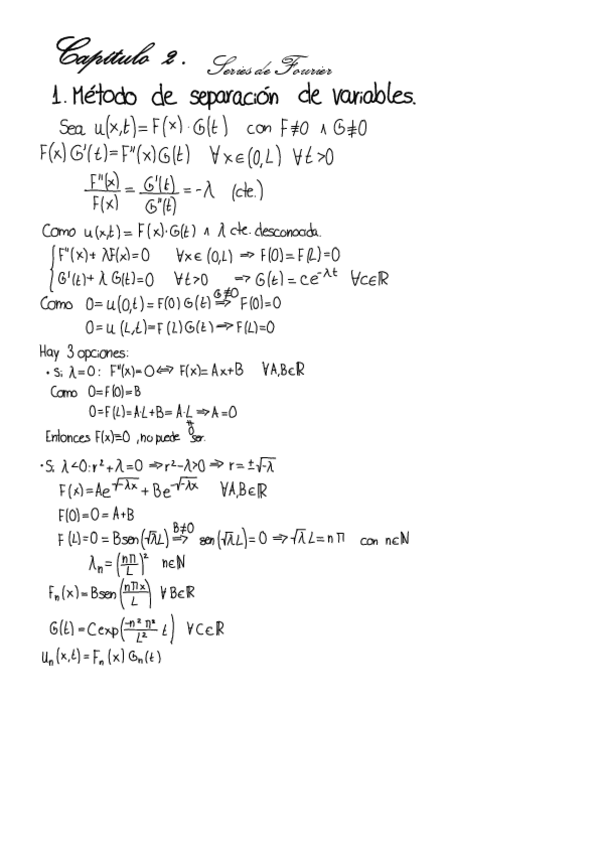 Capítulo 2. Series de Fourier
1. Método de separación de variables.
Sea u(x,t)=F(x)·G(t) con F≢0 ∧ G≢0
F(x)G'(t)=F''(x)G(t) ∀x∈(0,L) ∀t>0
F''(x)/F(x) = G'(t)/G''(t) = -λ (cte.)
Como u(x,t)=F(x)·G(t) ∧ λ cte. desconocida.
{ F''(x)+λF(x)=0 ∀x∈(0,L) ⇒ F(0)=F(L)=0
G'(t)+λG(t)=0 ∀t>0 ⇒ G(t)=ce^(-λt) ∀c∈ℝ
Como 0=u(0,t)=F(0)G(t) ⇒ (G≢0) F(0)=0
0=u(L,t)=F(L)G(t) ⇒ F(L)=0
Hay 3 opciones:
· Si λ=0: F''(x)=0 ⇔ F(x)=Ax+B ∀A,B∈ℝ
Como 0=F(0)=B
0=F(L)=A·L+B=A·L ⇒ A=0
≠
0
Entonces F(x)≡0, no puede ser.
· Si λ<0: r²+λ=0 ⇒ r²-λ>0 ⇒ r=±√-λ
F(x)=Ae^(√-λx)+Be^(-√-λx) ∀A,B∈ℝ
F(0)=0=A+B
F(L)=0=Bsen(√λL) ⇒ (B≠0) sen(√λL)=0 ⇒ √λL=nΠ con n∈ℕ
λₙ=(nΠ/L)² n∈ℕ
Fₙ(x)=Bsen(nΠx/L) ∀B∈ℝ
G(t)=Cexp(-n²π²/L² t) ∀C∈ℝ
uₙ(x,t)=Fₙ(x)Gₙ(t)